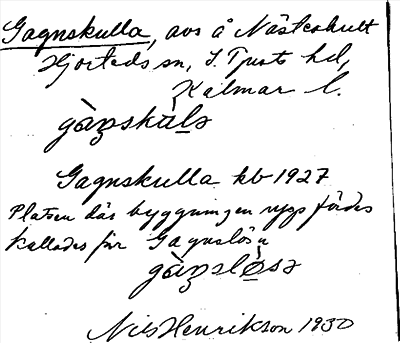 Gagnskulla, avs å Näste­hult
Hjorteds sn, S. Tjusts hd,
Kalmar l.
gàŋskùlə
Gagnskulla kb 1927
Platsen där byggningen upp fördes
kallades för Gagnslösa
gàŋsløsə
Nils Henrikson 1930